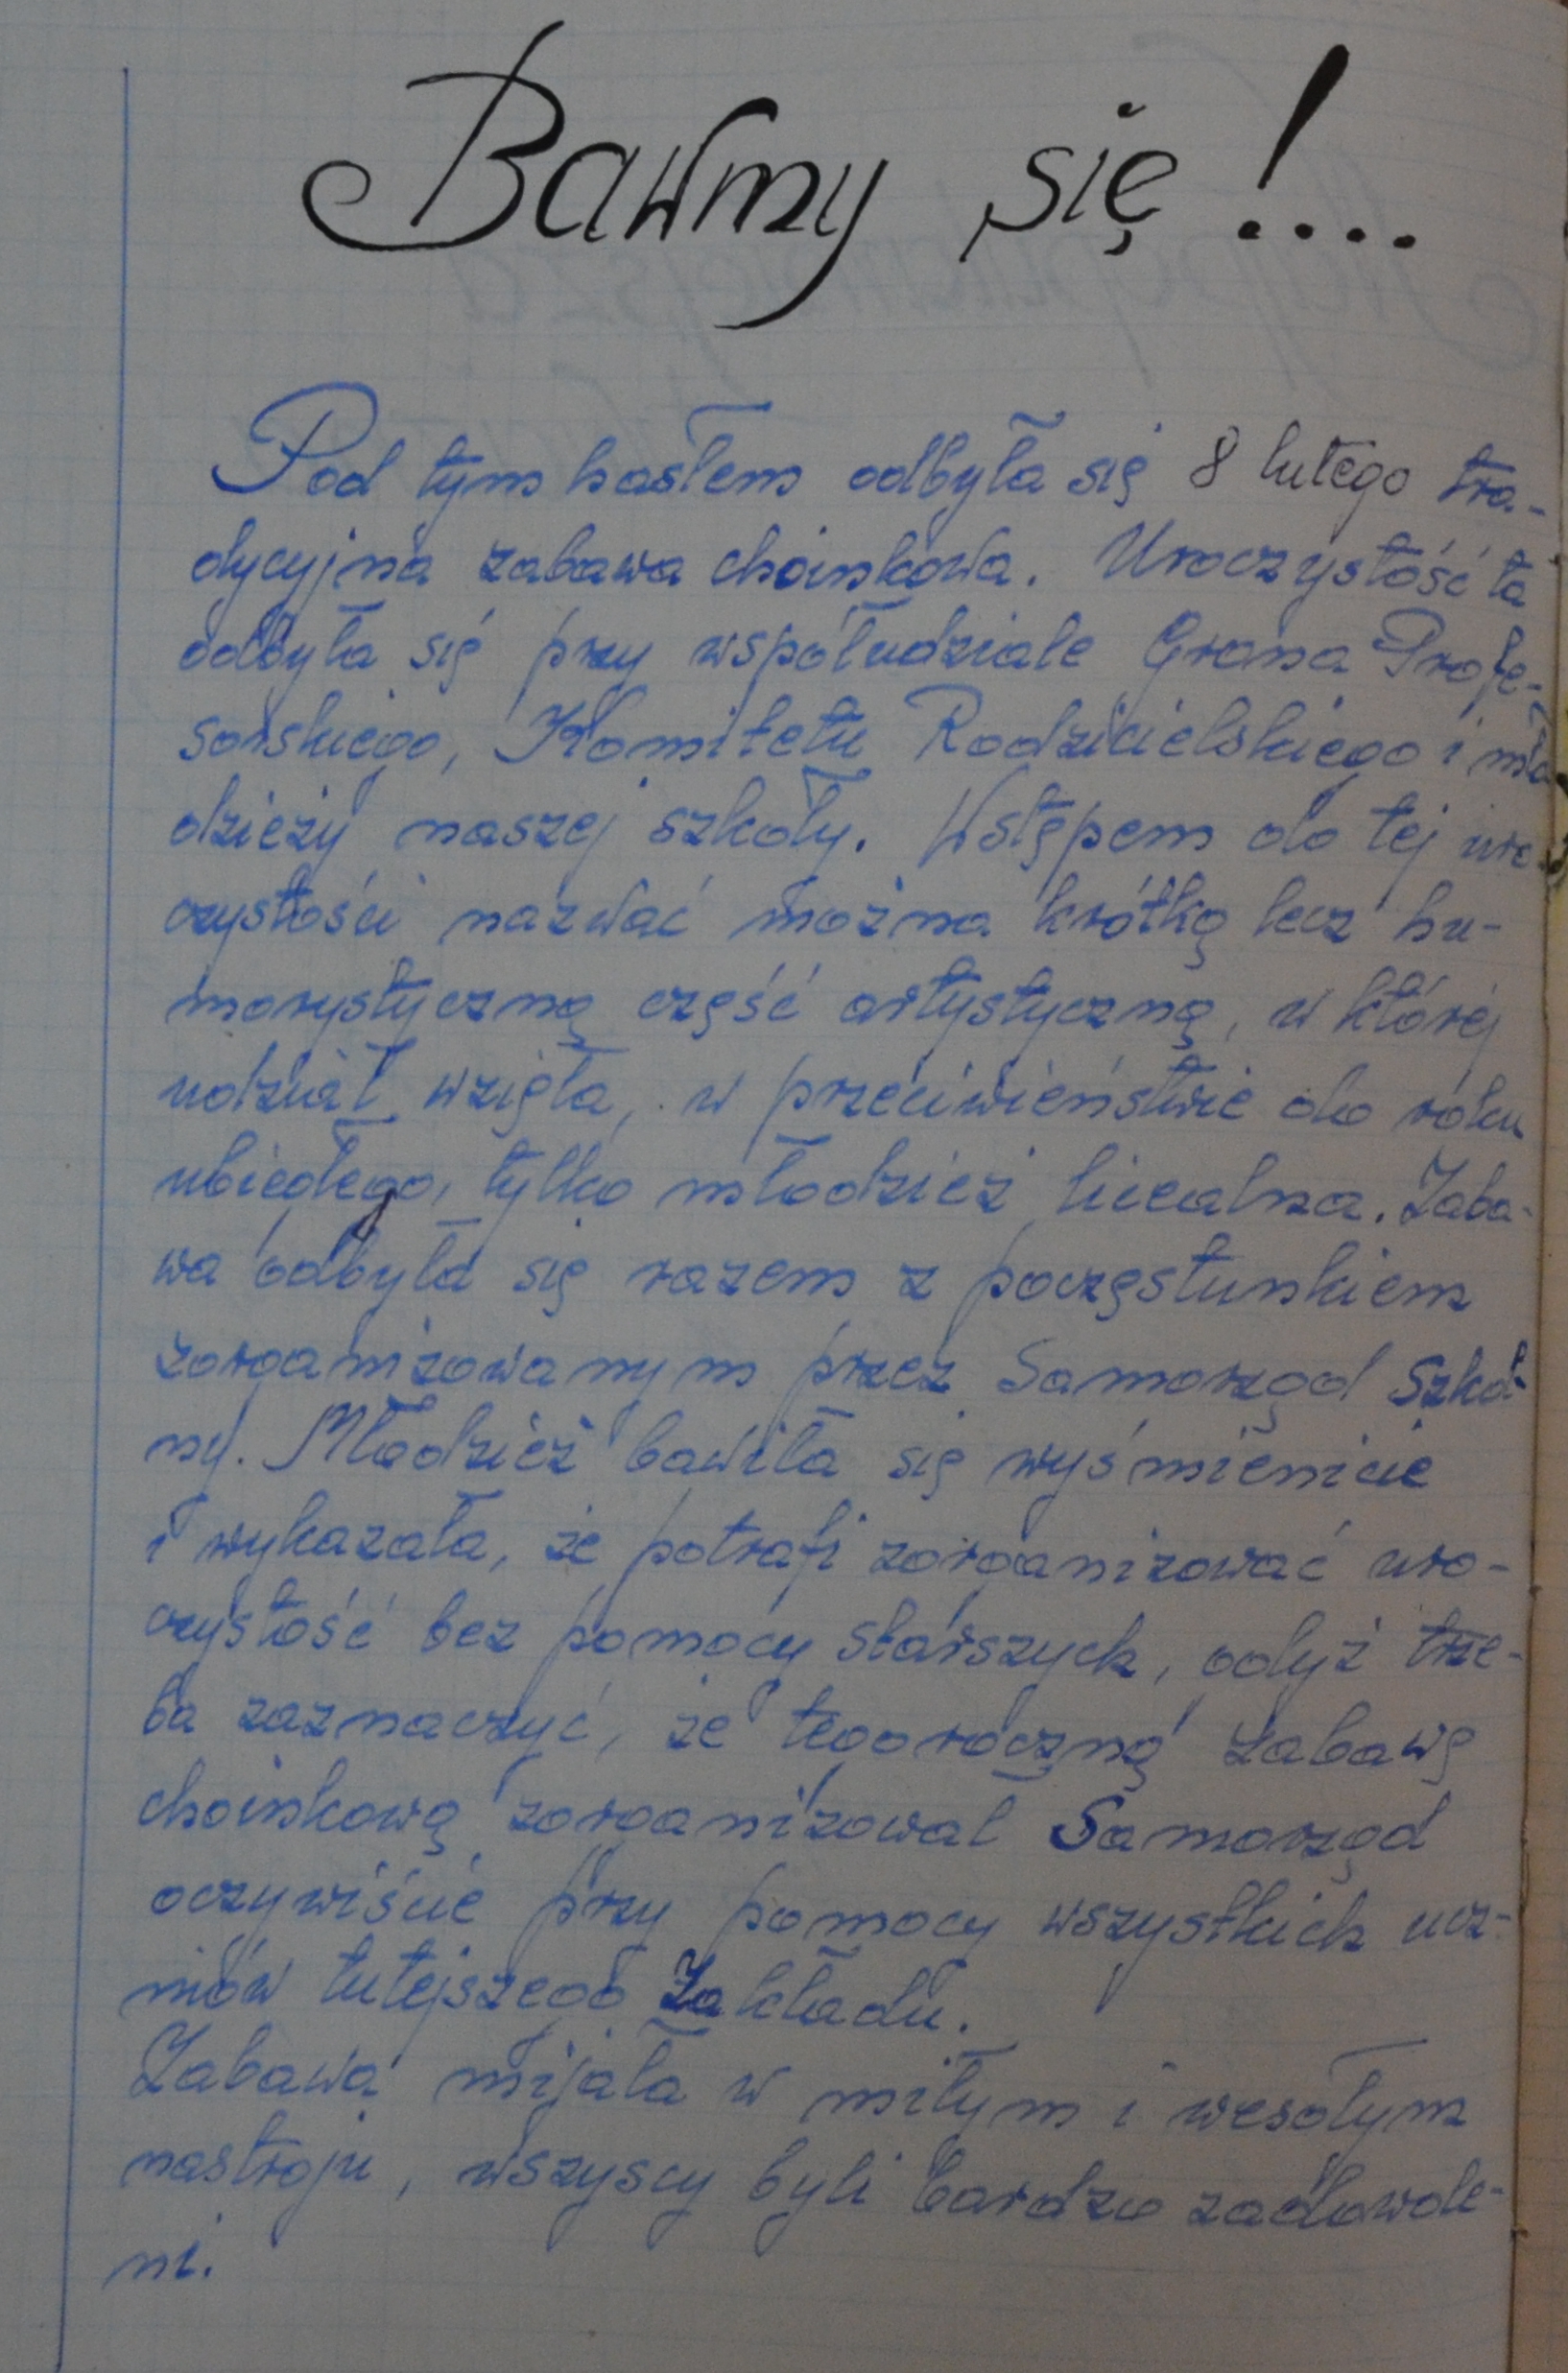 Bawmy się!...
Pod tym hasłem odbyła się 8 lutego tra-
dycyjna zabawa choinkowa. Uroczystość ta
odbyła się przy współudziale Grona Profe-
sorskiego, Komitetu Rodzicielskiego i mło
dzieży naszej szkoły. Wstępem do tej uro-
czystości nazwać można krótką lecz hu-
morystyczną część artystyczną, w której
udział wzięła, w przeciwieństwie do roku
ubiegłego, tylko młodzież licealna. Zaba-
wa odbyła się razem z poczęstunkiem
zorganizowanym przez Samorząd Szkol-
ny. Młodzież bawiła się wyśmienicie
i wykazała, że potrafi zorganizować uro-
czystość bez pomocy starszych, gdyż trze-
ba zaznaczyć, że tegoroczną zabawę
choinkową zorganizował Samorząd
oczywiście przy pomocy wszystkich ucz-
niów tutejszego Zakładu.
Zabawa mijała w miłym i wesołym
nastroju, wszyscy byli bardzo zadowole-
ni.